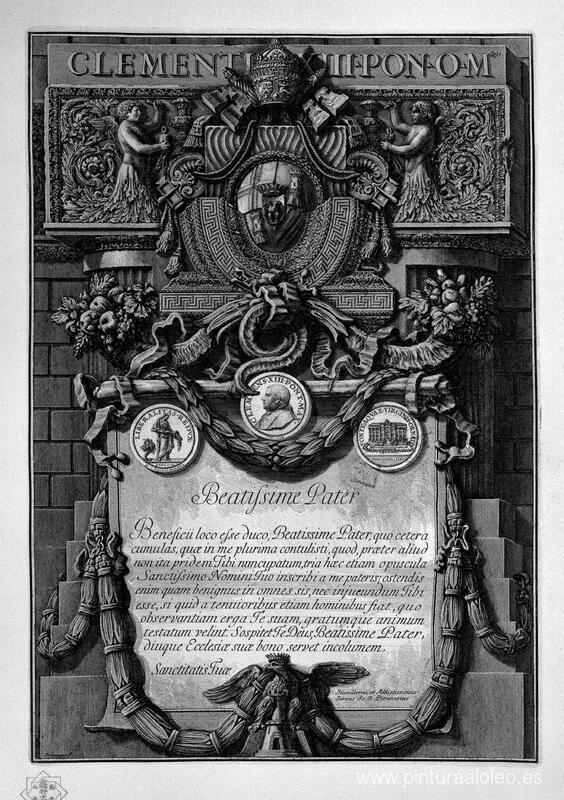 CLEMENTI XIII·PON·O·M
LIBERALITAS·REDUX
CLEMENS·XIII·PONT·MAX
Beatiſsime Pater
Beneficii loco eſse duco, Beatissime Pater, quo cetera
cumulas, quæ in me plurima contulisti, quod, præter aliud
non ita pridem Tibi nuncupatum, tria hæc etiam opuscula
Sanctiſsimo Nomini Tuo inscribi a me pateris; ostendis
enim quam benignus in omnes sis, nec injucundum Tibi
esse, si quid a tenuioribus etiam hominibus fiat, quo
observantiam erga Te suam, gratumque animum
testatum velint. Sospitet Te Deus, Beatissime Pater,
diuque Ecclesiæ suæ bono servet incolumem.
Sanctitatis Tuæ
Humillimus, et Addictissimus
Servus Jo. B. Piranesius
Piranesi F.
www.pinturaaloleo.es